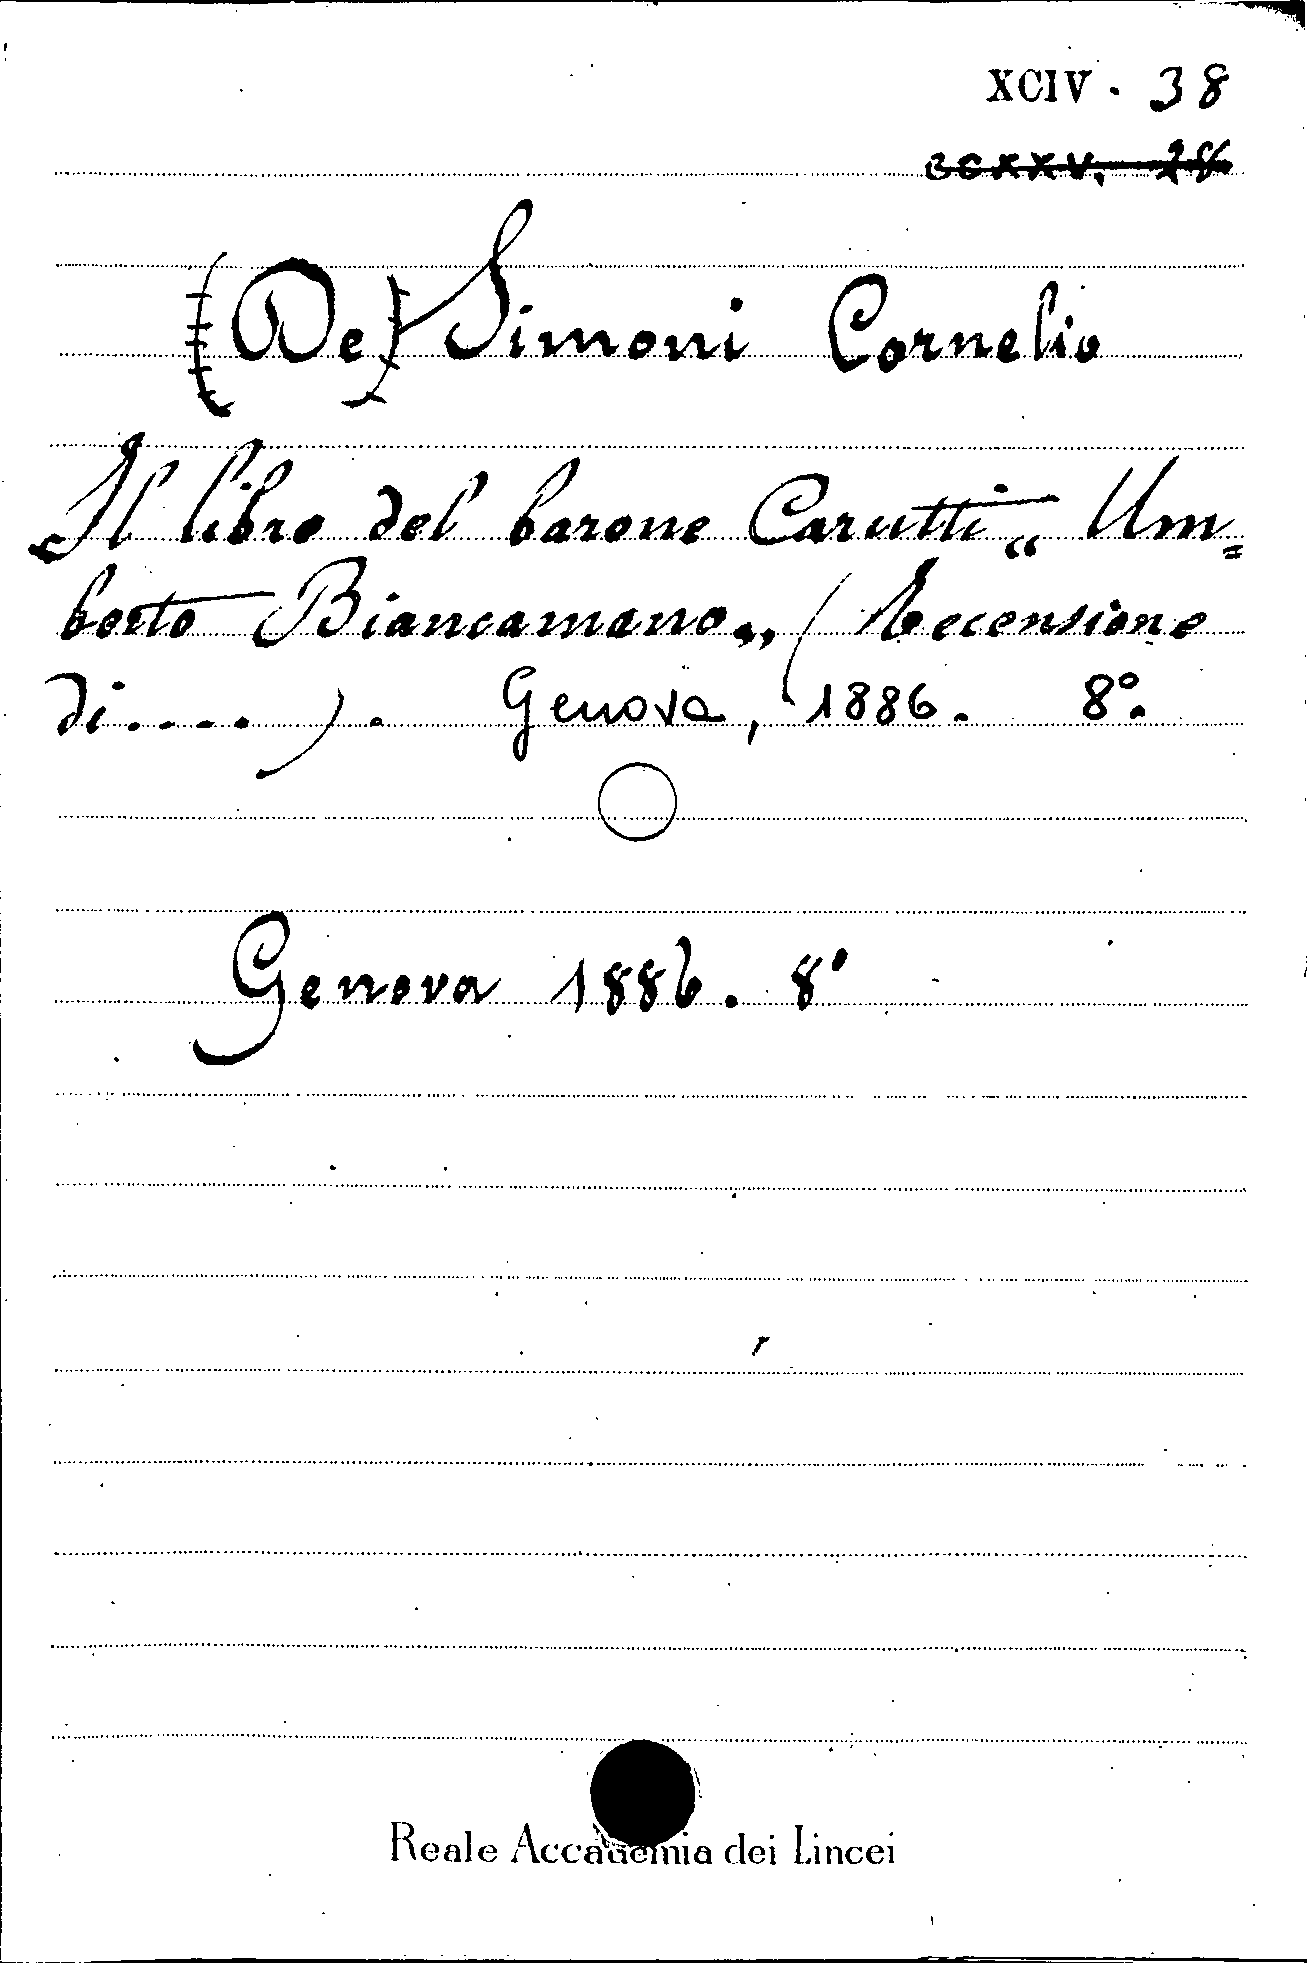 XCIV. 38
(De) Simoni Cornelio
Il libro del barone Carutti „ Um=
berto Biancamano„ (Recensione
di....). Genova, 1886. 8°.
Genova 1886. 8°
Reale Accademia dei Lincei